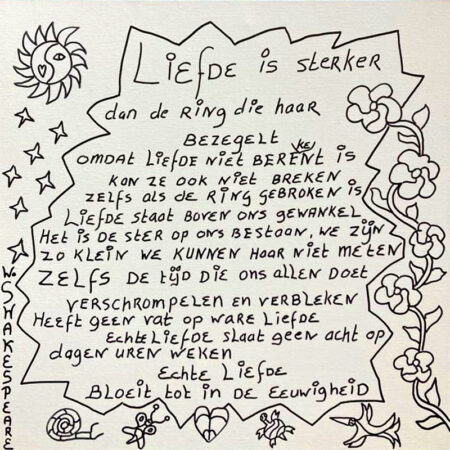 LIEFDE is STERKER
dan de RING die haar
BEZEGELT
OMDAT LIEFDE NIET BEREKENT is
KAN ZE OOK NIET BREKEN
ZELFS ALS DE RING GEBROKEN is
LIEFDE STAAT BOVEN ONS GEWANKEL
HET is DE STER OP ONS BESTAAN, WE ZIJN
ZO KLEIN WE KUNNEN HAAR NIET METEN
ZELFS DE TIJD DIE ONS ALLEN DOET
VERSCHROMPELEN EN VERBLEKEN
HEEFT GEEN VAT OP WARE LIEFDE
ECHTE LIEFDE SLAAT GEEN ACHT OP
DAGEN UREN WEKEN
ECHTE LIEFDE
BLOEIT TOT IN DE EEUWIGHEID
W. SHAKESPEARE